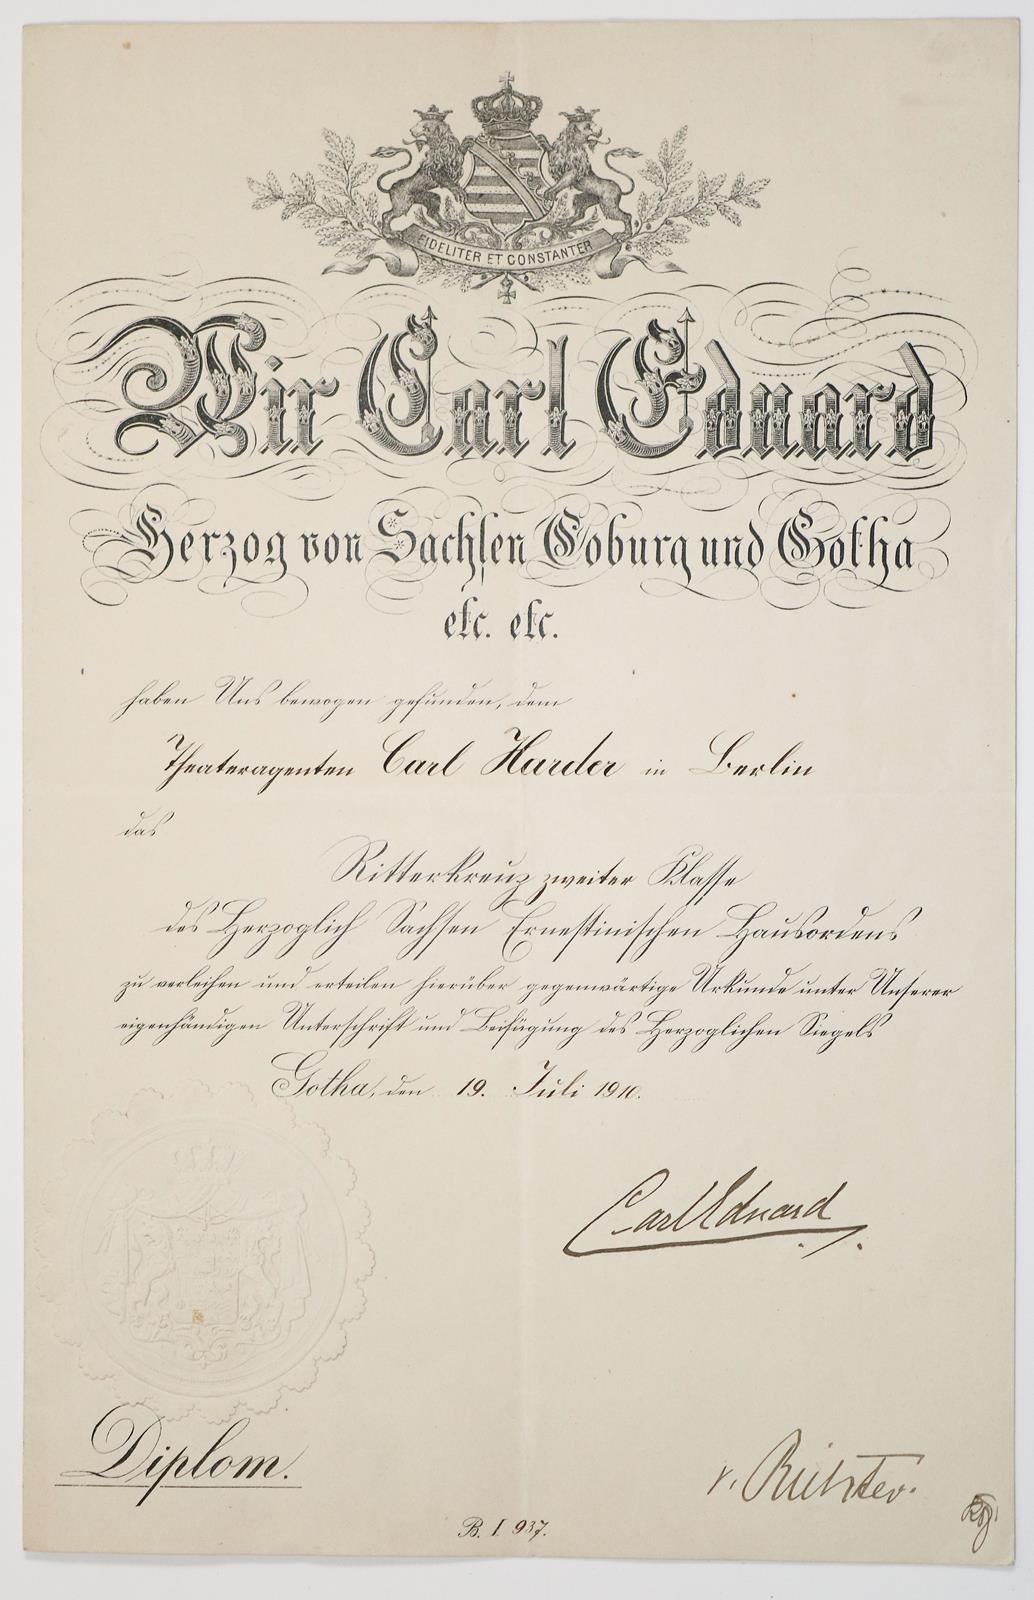 FIDELITER ET CONSTANTER
Wir Carl Eduard
Herzog von Sachsen Coburg und Gotha
etc. etc.
haben Uns bewogen gefunden, dem
Theateragenten Carl Harder in Berlin
das
Ritterkreuz zweiter Klasse
des Herzoglich Sachsen Ernestinischen Hausordens
zu verleihen und erteilen hierüber gegenwärtige Urkunde unter Unserer
eigenhändigen Unterschrift und Beifügung des Herzoglichen Siegels
Gotha, den 19. Juli 1910.
Carl Eduard
Diplom.
v. Richter.
B. I. 937.